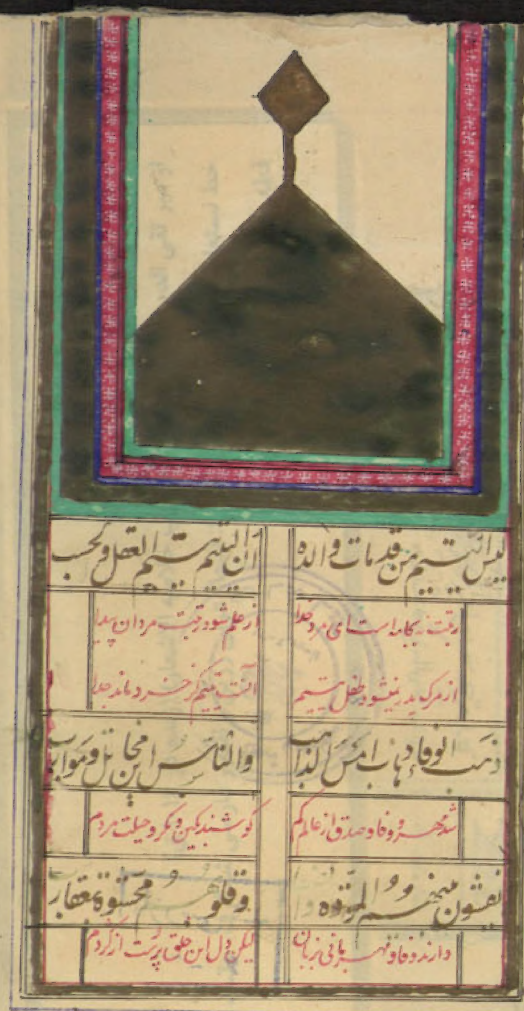 لیس الیتیم من قدمات والده ان الیتیم یتیم العقل والحسب
رتبت نه بجامه است ای مرد خدا از علم شود رتبت مردان پیدا
از مرک پدر نیشود طفل یتیم آنست یتیم کز خرد ماند جدا
ذهب الوفاء ذهاب امس الذاهب والناس بین مخاتل وموارب
شد مهر و وفا و صدق از عالم کم کوشند بکین و مکر و حیلت مردم
یفشون بینهم المودة وا وقلوبهم محشوة بعقارب
دارند وفا و مهربانی بزبان لیکن دل این خلق پرست از کژدم